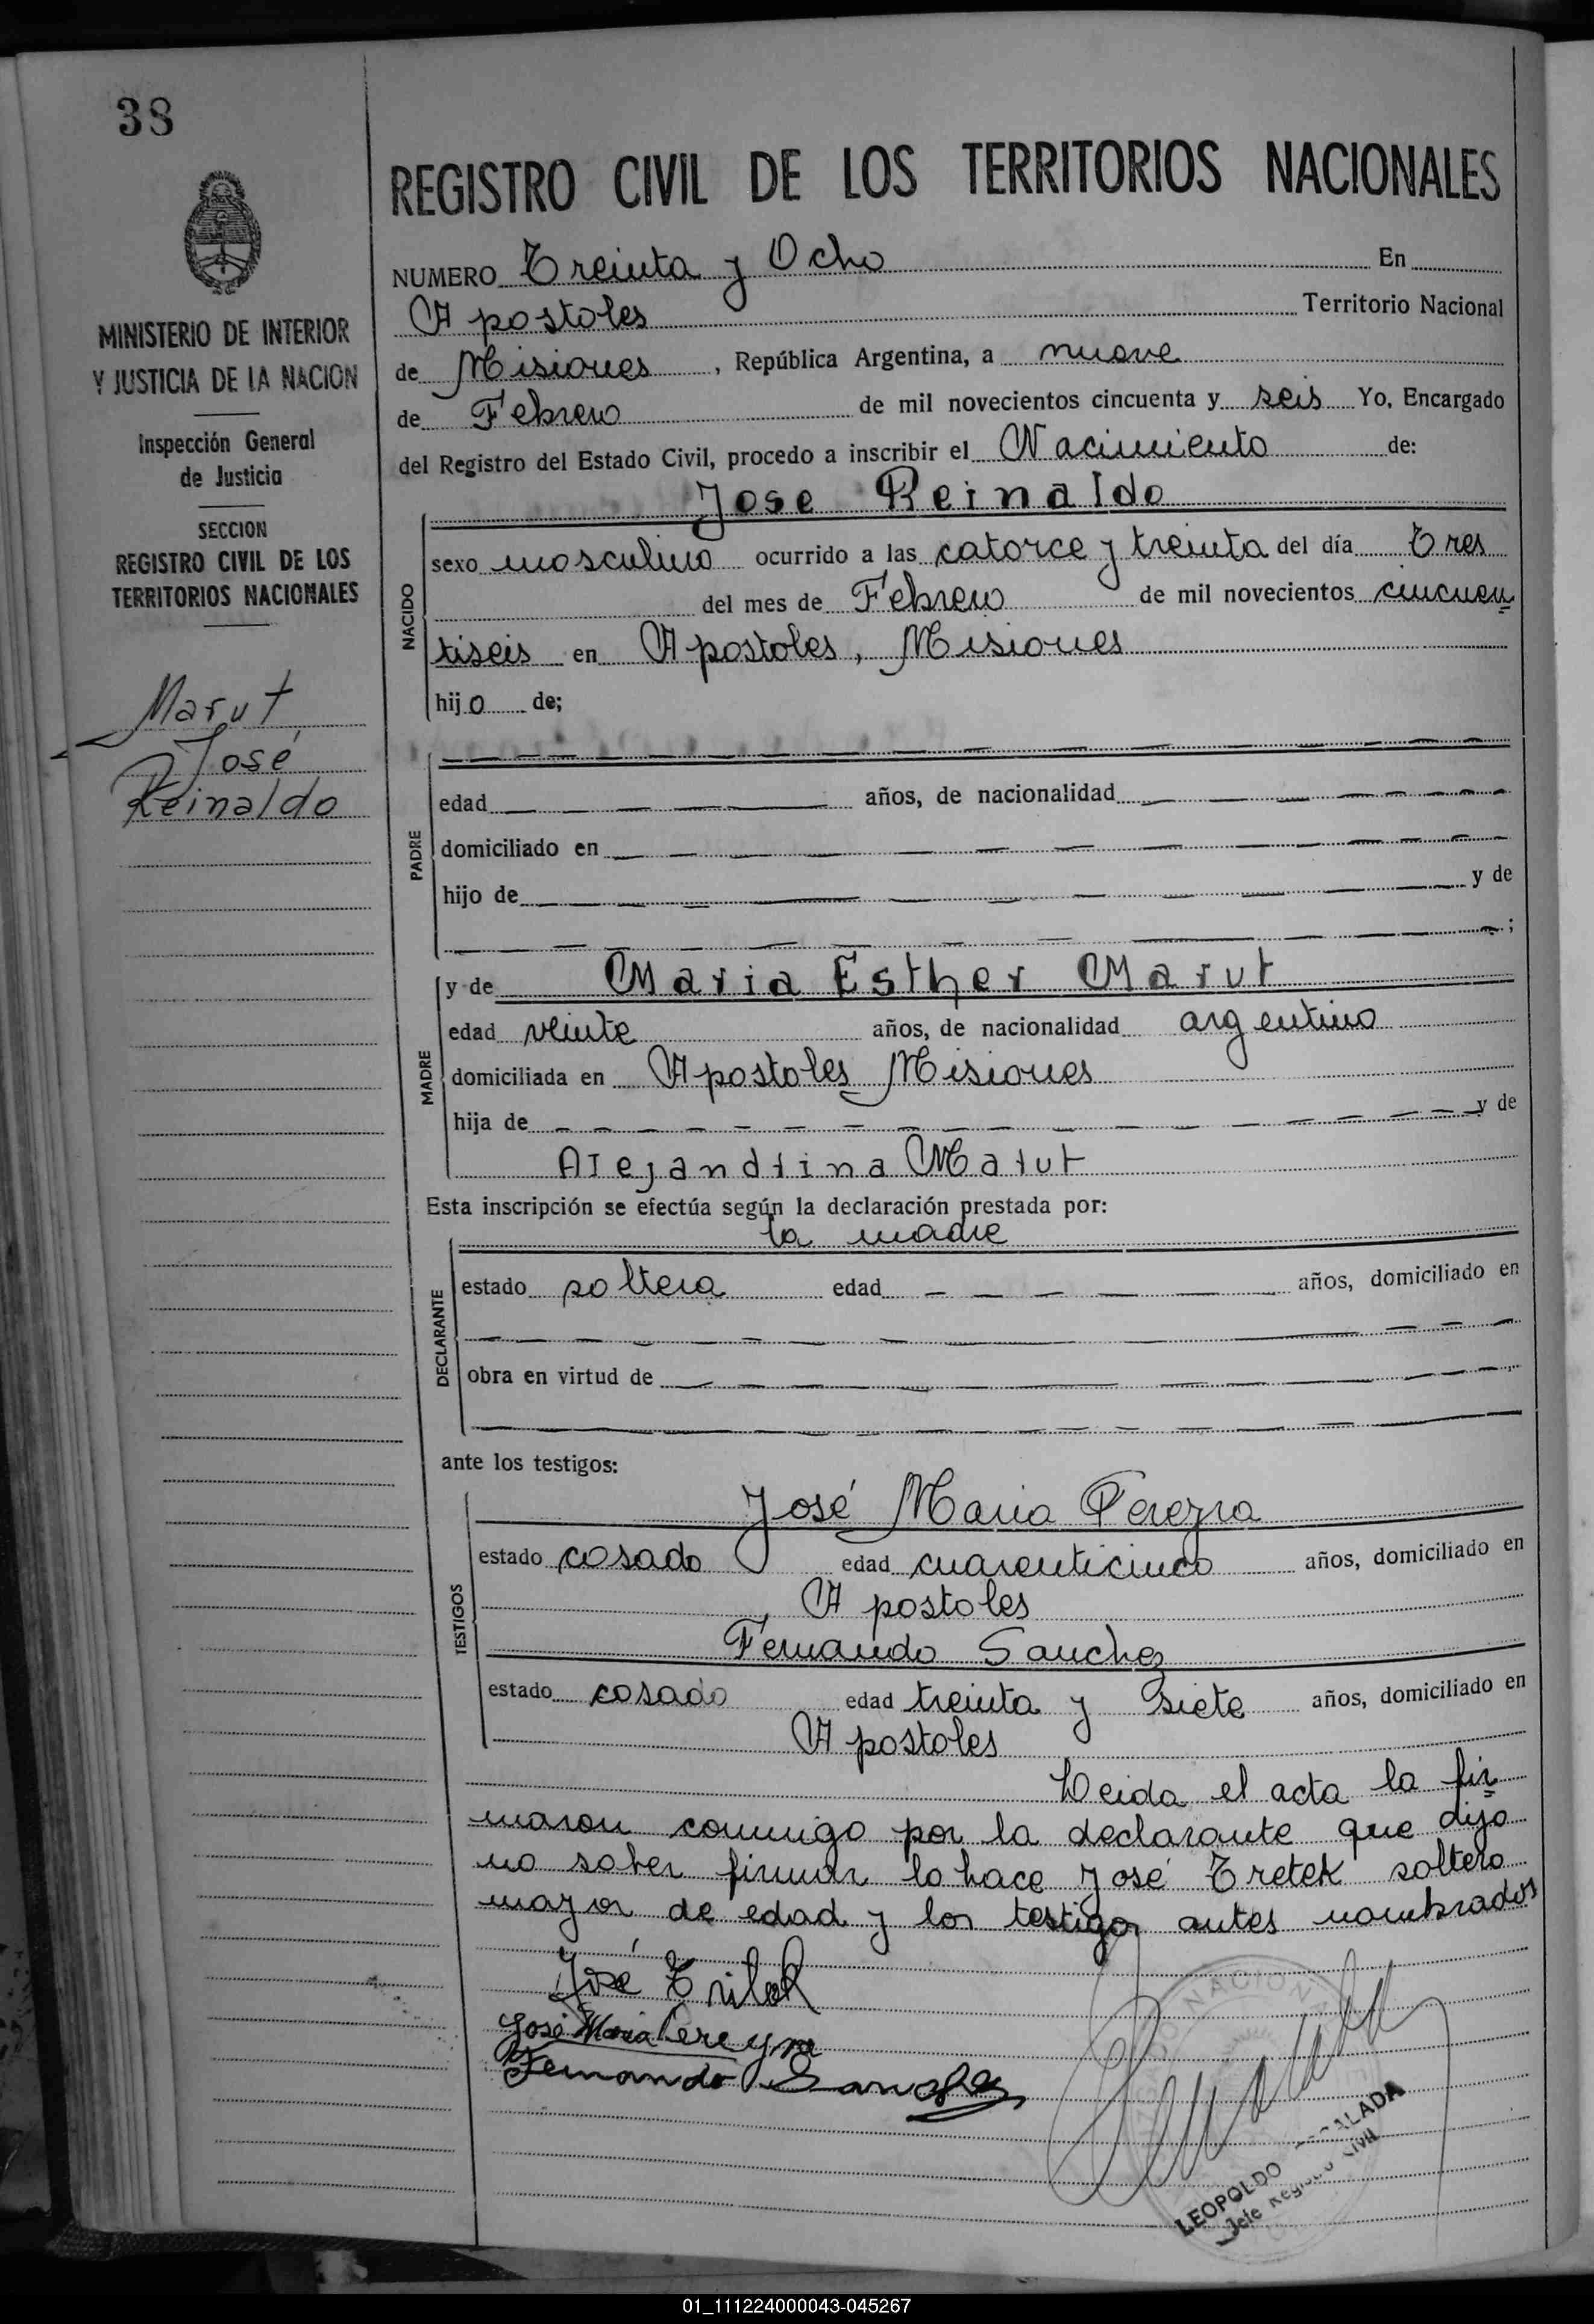 38
MINISTERIO DE INTERIOR
Y JUSTICIA DE LA NACION
Inspección General
de Justicia
SECCION
REGISTRO CIVIL DE LOS
TERRITORIOS NACIONALES
Marut
José
Reinaldo
REGISTRO CIVIL DE LOS TERRITORIOS NACIONALES
NUMERO Treinta y Ocho En
Apostoles Territorio Nacional
de Misiones, República Argentina, a nueve
de Febrero de mil novecientos cincuenta y seis Yo, Encargado
del Registro del Estado Civil, procedo a inscribir el Nacimiento de:
Jose Reinaldo
NACIDO
sexo masculino ocurrido a las catorce y treinta del día Tres
del mes de Febrero de mil novecientos cincuen
tiseis en Apostoles, Misiones
hijo de;
PADRE
edad años, de nacionalidad
domiciliado en
hijo de y de
;
MADRE
y de Maria Esther Marut
edad veinte años, de nacionalidad argentino
domiciliada en Apostoles Misiones
hija de y de
Alejandrina Marut
Esta inscripción se efectúa según la declaración prestada por:
la madre
DECLARANTE
estado soltera edad años, domiciliado en
obra en virtud de
ante los testigos:
TESTIGOS
José Maria Pereyra
estado casado edad cuarenticinco años, domiciliado en
Apostoles
Fernando Sanchez
estado casado edad treinta y siete años, domiciliado en
Apostoles
Leida el acta la fir
maron conmigo por la declarante que dijo
no saber firmar lo hace José Tretek soltero
mayor de edad y los testigos antes nombrados
José
José Maria Pereyra
Fernando Sanchez
LEOPOLDO
Jefe Registro Civil
01_111224000043-045267